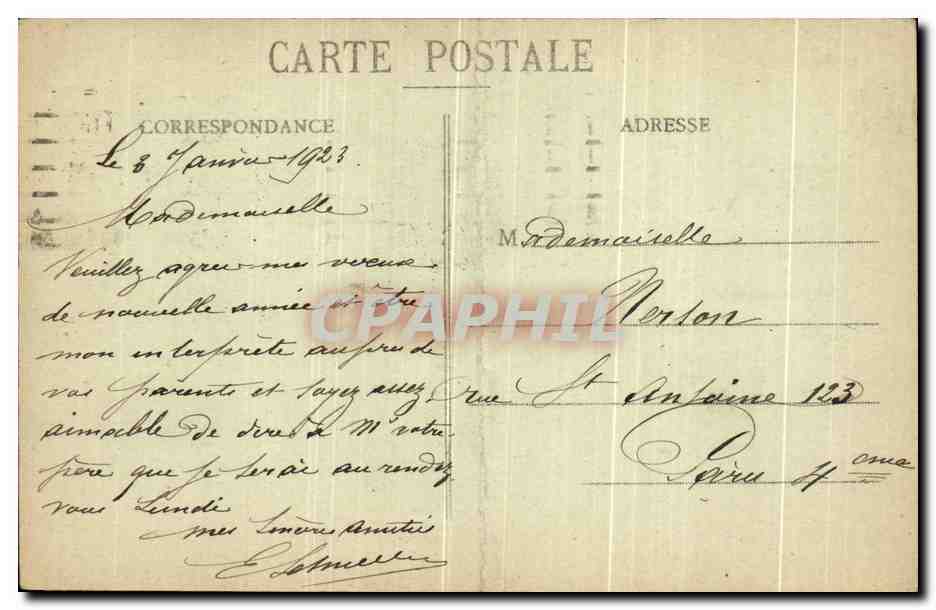 CARTE POSTALE
CORRESPONDANCE
Le 3 Janvier 1923
Mademoiselle
Veuillez agreer mes voeux
de nouvelle année et être
mon interprète auprès de
vos parents et soyez assez
aimable de dire à Mr votre
père que je serai au rendez
vous Lundi
mes sincères amitiés
ADRESSE
Mademoiselle
Nerson
rue St Antoine 123
Paris 4eme
CPAPHIL